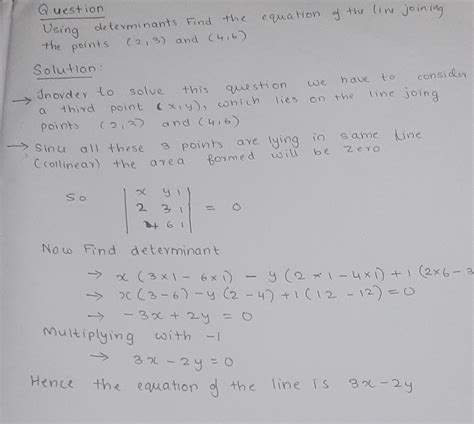 Question
Using determinants Find the equation of the line joining
the points (2,3) and (4,6)
Solution:
→ Inorder to solve this question we have to consider
a third point (x,y), which lies on the line joing
points (2,3) and (4,6)
→ Sinu all these 3 points are lying in same line
(collinear) the area formed will be zero
So
| x y 1 |
| 2 3 1 | = 0
| 4 6 1 |
Now Find determinant
→ x(3×1 - 6×1) - y(2×1 - 4×1) + 1(2×6 - 3
→ x(3-6) - y(2-4) + 1(12-12) = 0
→ -3x + 2y = 0
Multiplying with -1
→ 3x - 2y = 0
Hence the equation of the line is 3x - 2y